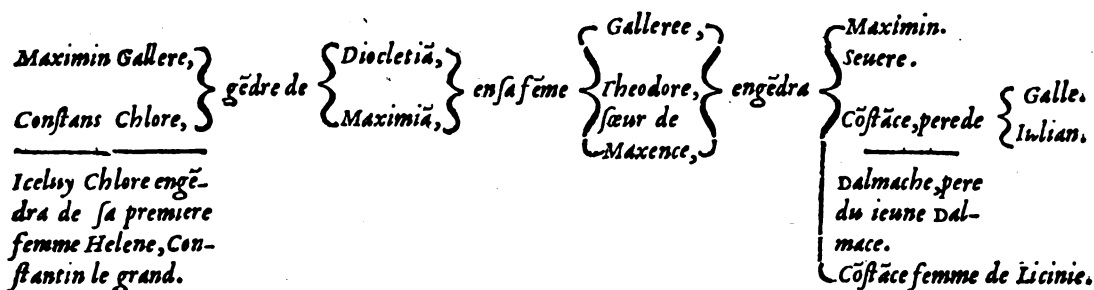 Maximin Gallere,
Constans Chlore,
gẽdre de
Diocletiã,
Maximiã,
en sa fẽme
Galleree,
Theodore,
sœur de
Maxence,
engẽdra
Maximin.
Seuere.
Cõstãce, pere de
Galle.
Iulian.
Dalmache, pere
du ieune Dal-
mace.
Cõstãce femme de Licinie.
Iceluy Chlore engẽ-
dra de sa premiere
femme Helene, Con-
stantin le grand.